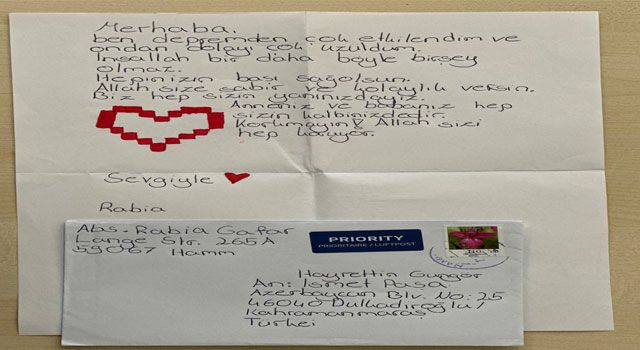 Merhaba,
ben depremden çok etkilendim ve
ondan dolayı çok üzüldüm.
Inşallah bir daha böyle birşey
olmaz.
Hepinizin başı sağolsun.
Allah size sabır ve kolaylık versin.
Biz hep sizin yanınızdayız.
Anneniz ve babanız hep
sizin kalbinizdedir.
Korkmayın! Allah sizi
hep koruyor.
Sevgiyle
Rabia
Abs. Rabia Gafar
Lange Str. 265A
59067 Hamm
PRIORITY
PRIORITAIRE / LUFTPOST
Hayrettin Güngör
An: Ismet Paşa
Azerbaycan Blv. No: 25
46040 Dulkadiroğlu/
Kahramanmaraş
Türkei